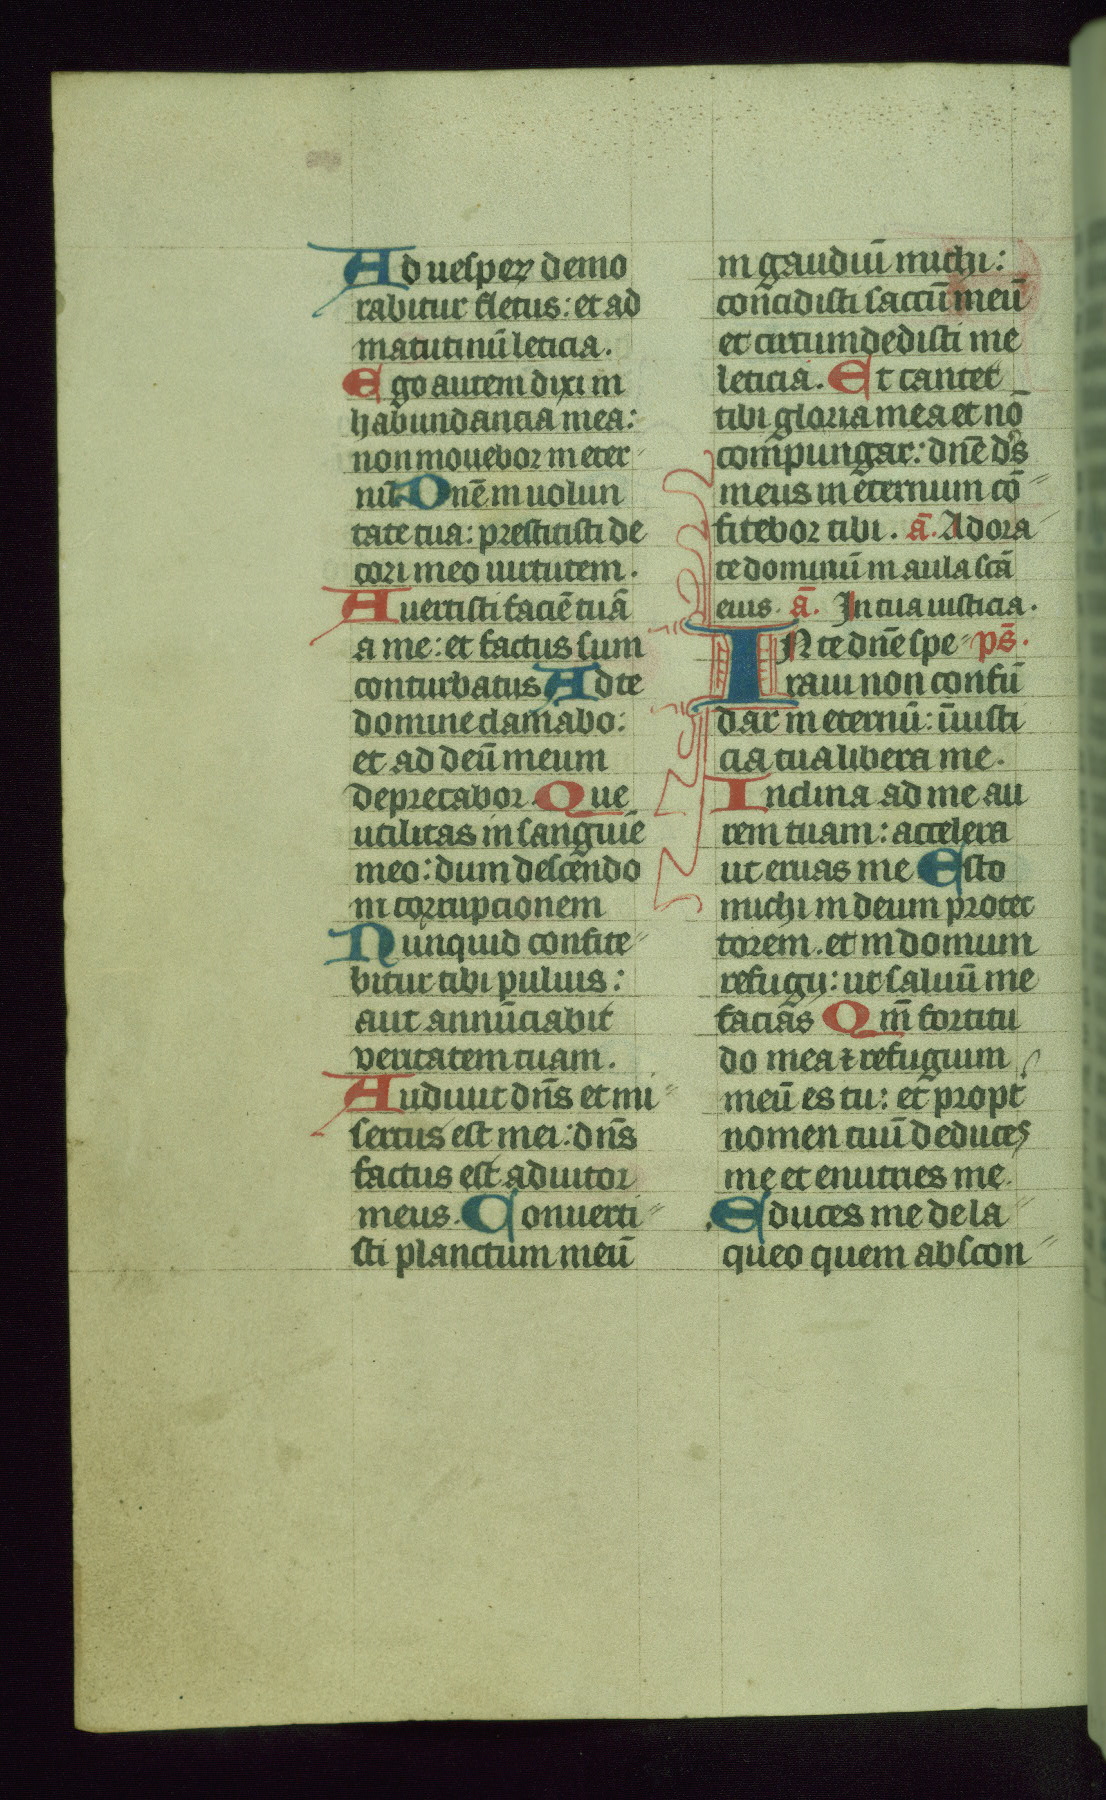 Ad uesperꝝ demo
rabitur fletus: et ad
matutinū leticia.
Ego autem dixi in
habundancia mea:
non mouebor in eter-
nū. Dnē in uolun
tate tua: prestitisti de
cori meo uirtutem.
Auertisti faciē tuā
a me: et factus sum
conturbatus Ad te
domine clamabo:
et ad deū meum
deprecabor. Que
utilitas in sanguīe
meo: dum descendo
in corrupcionem
Nunquid confite-
bitur tibi puluis:
aut annūciabit
veritatem tuam.
Audiuit dn̄s et mi-
sertus est mei: dn̄s
factus est adiutor
meus. Conuerti-
sti planctum meū
in gaudiū michi:
concidisti saccū meū
et circumdedisti me
leticia. Et cantet
tibi gloria mea et nō
compungar: dnē ds̄
meus in eternum cō-
fitebor tibi. a̅. Adora-
te dominū in aula scā
eius. a̅. In tua iusticia.
IN te dnē spe- ps̄.
raui non confū
dar in eternū: ī iusti
cia tua libera me.
Inclina ad me au
rem tuam: accelera
ut eruas me Esto
michi in deum protec
torem. et in domum
refugij: ut saluū me
facias Qm̄ fortitu
do mea ⁊ refugium
meū es tu: et propt̉
nomen tuū deduces
me et enutries me.
Educes me de la-
queo quem abscon-